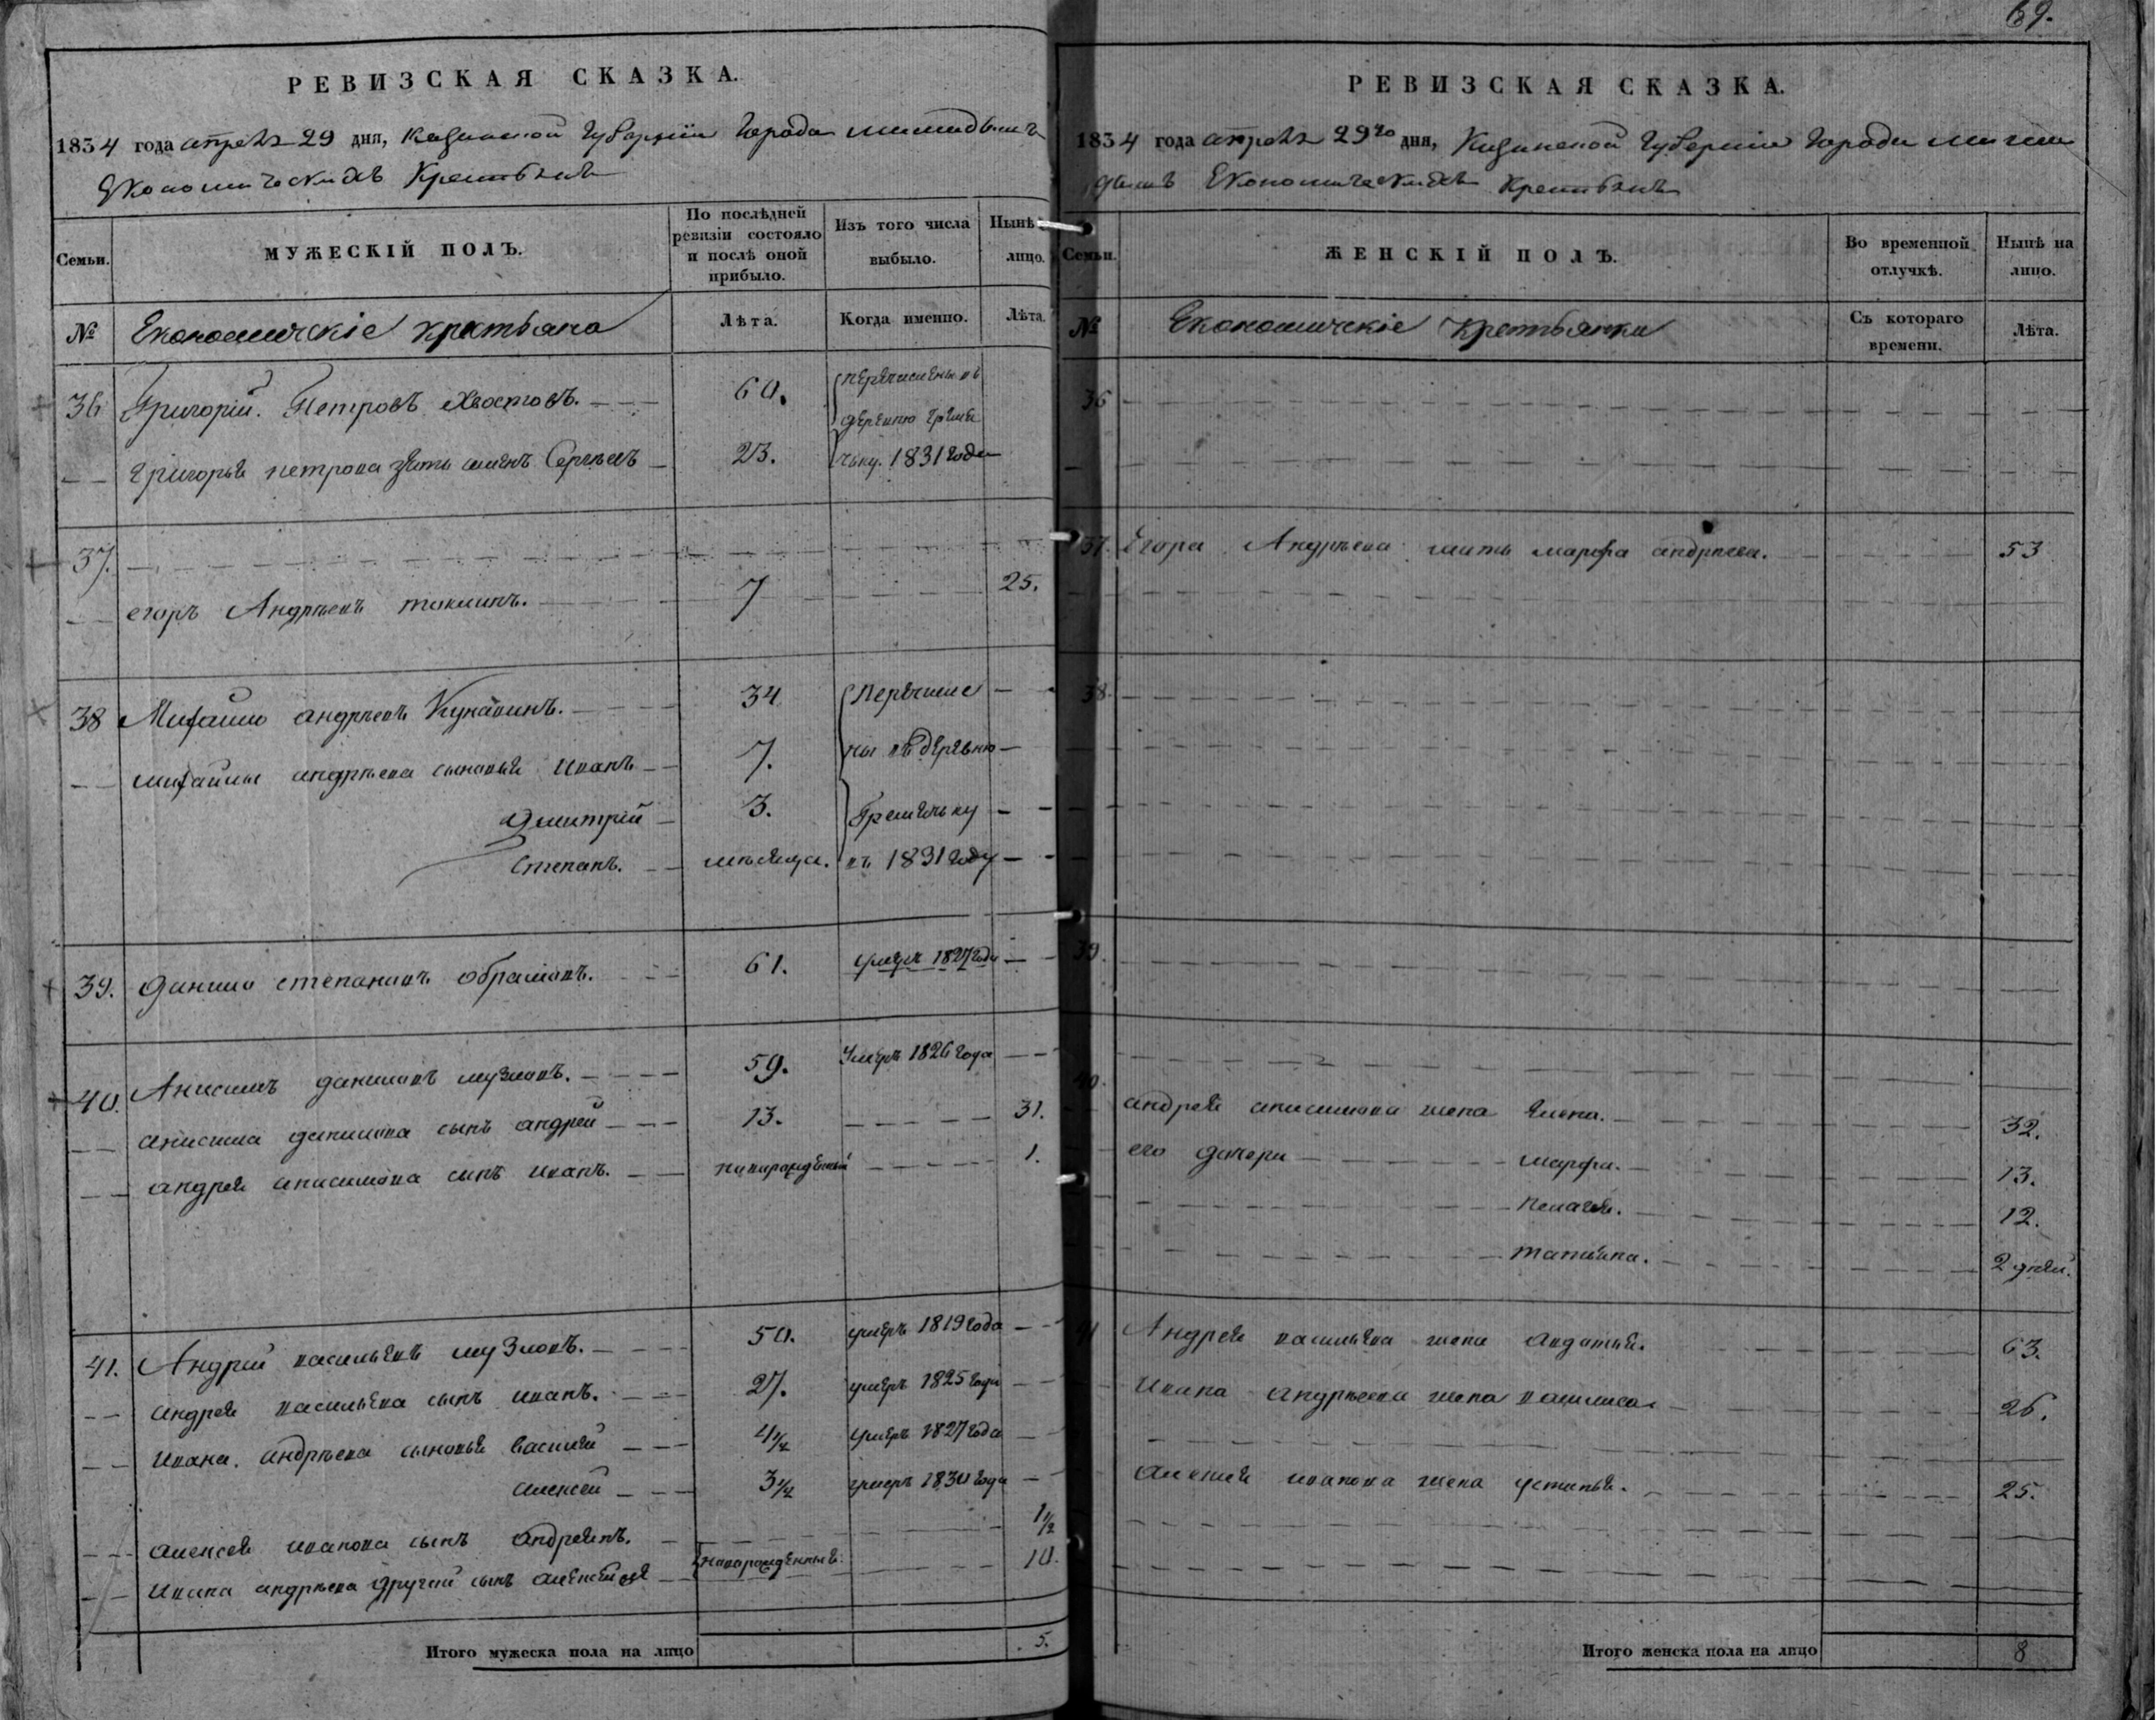 69.
РЕВИЗСКАЯ СКАЗКА.
1834 года апреля 29 дня, Казанской Губернии Города
Економическихъ Крестьянъ
Семьи.
МУЖЕСКІЙ ПОЛЪ.
По послѣдней ревизіи состояло и послѣ оной прибыло.
Изъ того числа выбыло.
Нынѣ лицо.
№
Економическіе крестьяна
Лѣта.
Когда именно.
Лѣта.
36 Григорій Петровъ Хвостовъ. 60. перечислены въ
деревню
Григорья петрова зять Сергѣевъ 23. 1831 года
37.
егоръ Андрѣевъ 7 25.
38 Михайло андрѣевъ 34 перечисле
михайлы андрѣева сыновья иванъ 7. ны въ деревню
Дмитрій 3. Гремячьку
Степанъ. мѣсяца. въ 1831 году
39. Данило степановъ обрамовъ. 61. умеръ 1827 года
40. Анисимъ даниловъ музловъ. 59. Умеръ 1826 года
анисима данилова сынъ андрей 13. 31.
андрея анисимова сынъ иванъ. новарожденный 1.
41. Андрей васильевъ музловъ. 50. умеръ 1819 года
андрея васильева сынъ иванъ. 27. умеръ 1825 года
ивана андрѣева сыновья василей 4 1/4 умеръ 1827 года
алексей 3 1/4 умеръ 1830 года
алексея иванова сынъ андреянъ. 1 1/2
ивана андрѣева другой сынъ алексей новарожденныя 10.
Итого мужеска пола на лицо 5.
РЕВИЗСКАЯ СКАЗКА.
1834 года апреля 29го дня, Казанской Губернии Города
Економическихъ Крестьянъ
Семьи.
ЖЕНСКІЙ ПОЛЪ.
Во временной отлучкѣ.
Нынѣ на лицо.
№
Економическіе Крестьянки
Съ котораго времени.
Лѣта.
36
37. Егора Андрѣева мать марфа андрѣева. 53
38.
39.
40.
андрея анисимова жена елена. 32.
его дочери марфа. 13.
пелагея. 12.
татьяна. 2 дней.
41 Андрея васильева жена авдотья. 63.
Ивана андрѣева жена василиса 26.
алексея иванова жена устинья. 25.
Итого женска пола на лицо 8